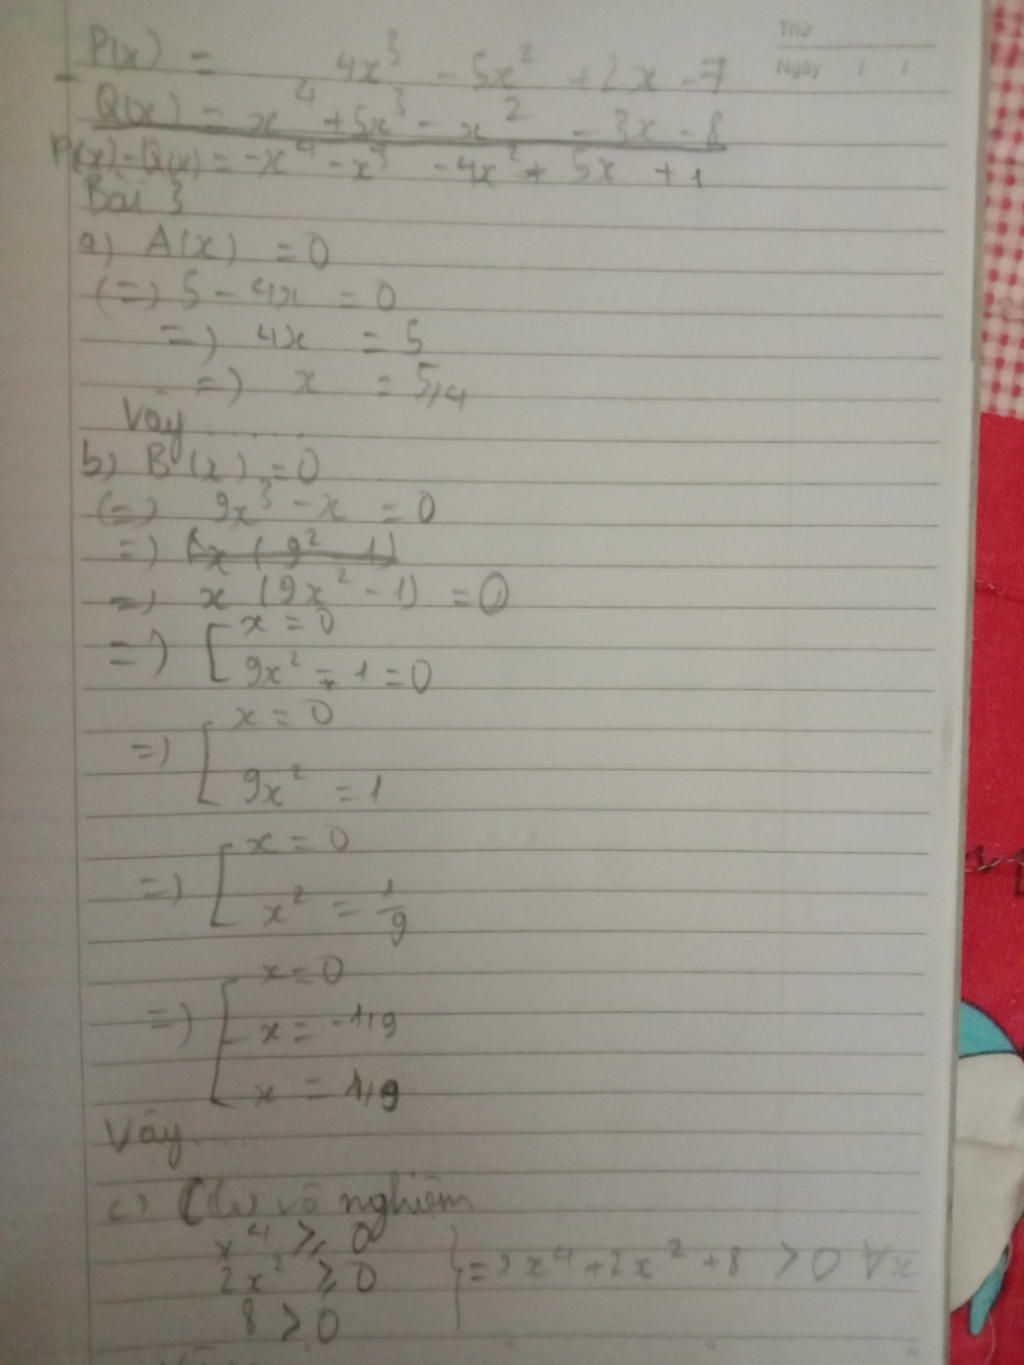 Thứ
Ngày / /
P(x) = 4x³ - 5x² + 2x - 7
- Q(x) = x⁴ + 5x³ - x² - 3x - 8
P(x) - Q(x) = -x⁴ - x³ - 4x² + 5x + 1
Bài 3
a) A(x) = 0
(=) 5 - 4x = 0
=) 4x = 5
=) x = 5/4
Vậy .....
b) B(x) = 0
(=) 9x³ - x = 0
=) x (9x² - 1) = 0
=) [ x = 0
9x² - 1 = 0
=) [ x = 0
9x² = 1
=) [ x = 0
x² = 1/9
=) [ x = 0
x = -1/9
x = 1/9
Vậy...
c) C(x) vô nghiệm
x⁴ ⩾ 0
2x² ⩾ 0 } =) x⁴ + 2x² + 8 > 0 ∀x
8 > 0